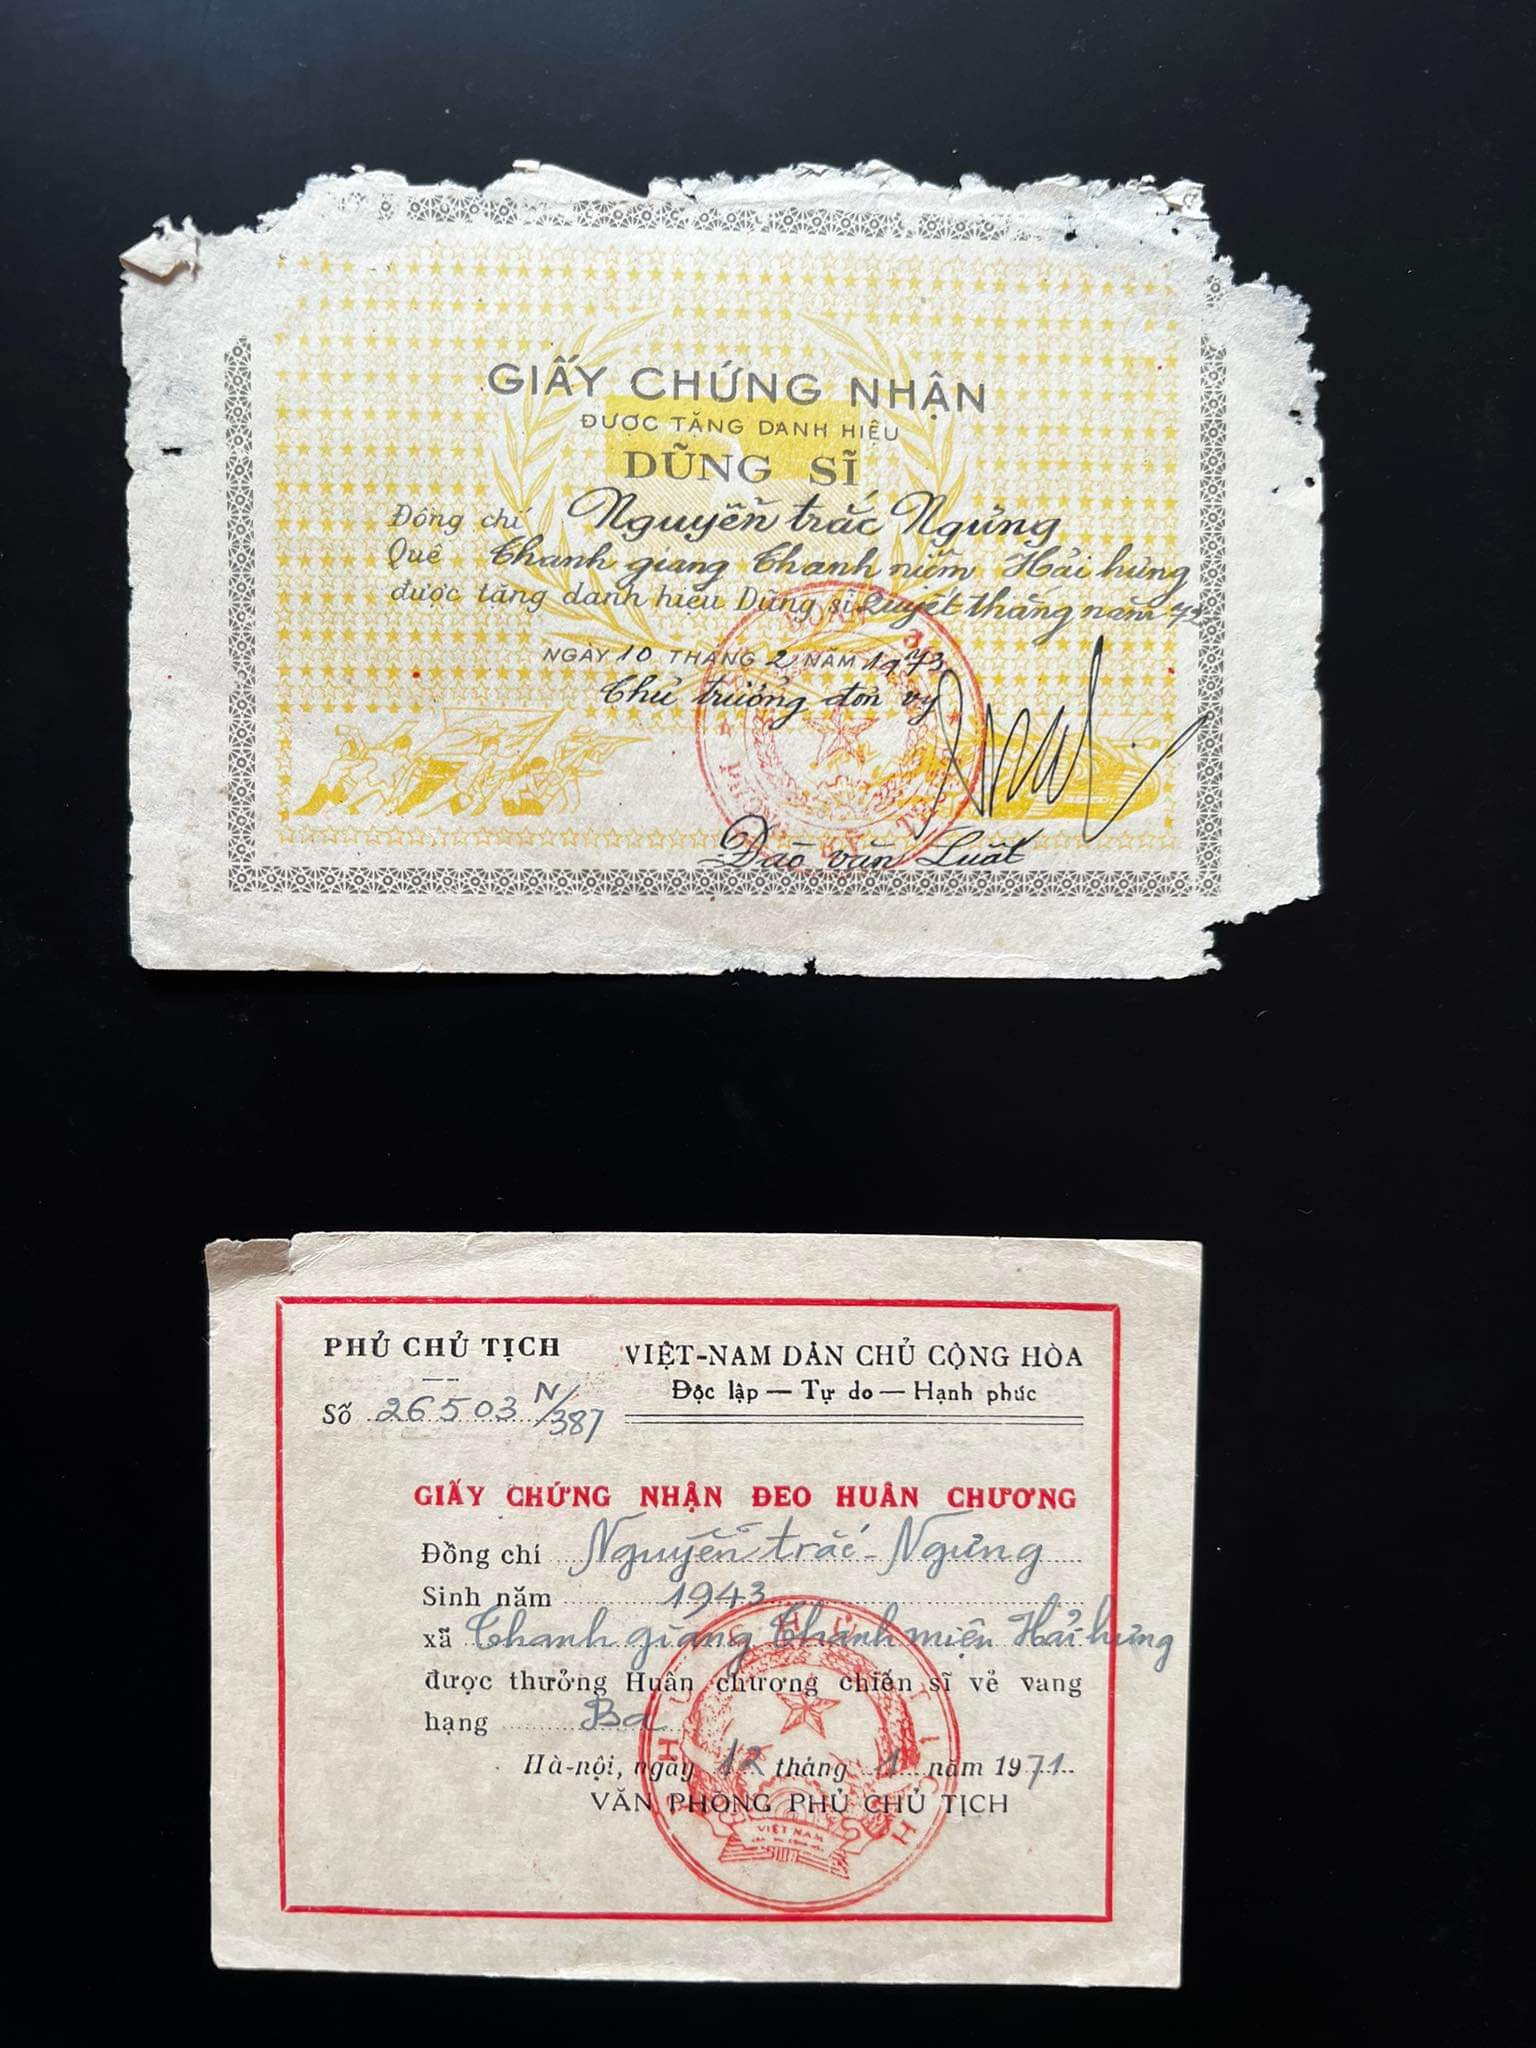 GIẤY CHỨNG NHẬN
ĐƯỢC TẶNG DANH HIỆU
DŨNG SĨ
Đồng chí Nguyễn trắc Ngưng
Quê Thanh giang Thanh niễm Hải hưng
được tặng danh hiệu Dũng sĩ Quyết thắng năm 72
NGÀY 10 THÁNG 2 NĂM 1973
Thủ trưởng đơn vỵ
Đào văn Luât
PHỦ CHỦ TỊCH
VIỆT-NAM DÂN CHỦ CỘNG HÒA
Độc lập — Tự do — Hạnh phúc
Số 26503 N/387
GIẤY CHỨNG NHẬN ĐEO HUÂN CHƯƠNG
Đồng chí Nguyễn trắc - Ngưng
Sinh năm 1943
xã Thanh giang Thanh miện Hải hưng
được thưởng Huân chương chiến sĩ vẻ vang
hạng Ba
Hà-nội, ngày 12 tháng 1 năm 1971
VĂN PHÒNG PHỦ CHỦ TỊCH
PHỦ CHỦ TỊCH
VIỆT NAM